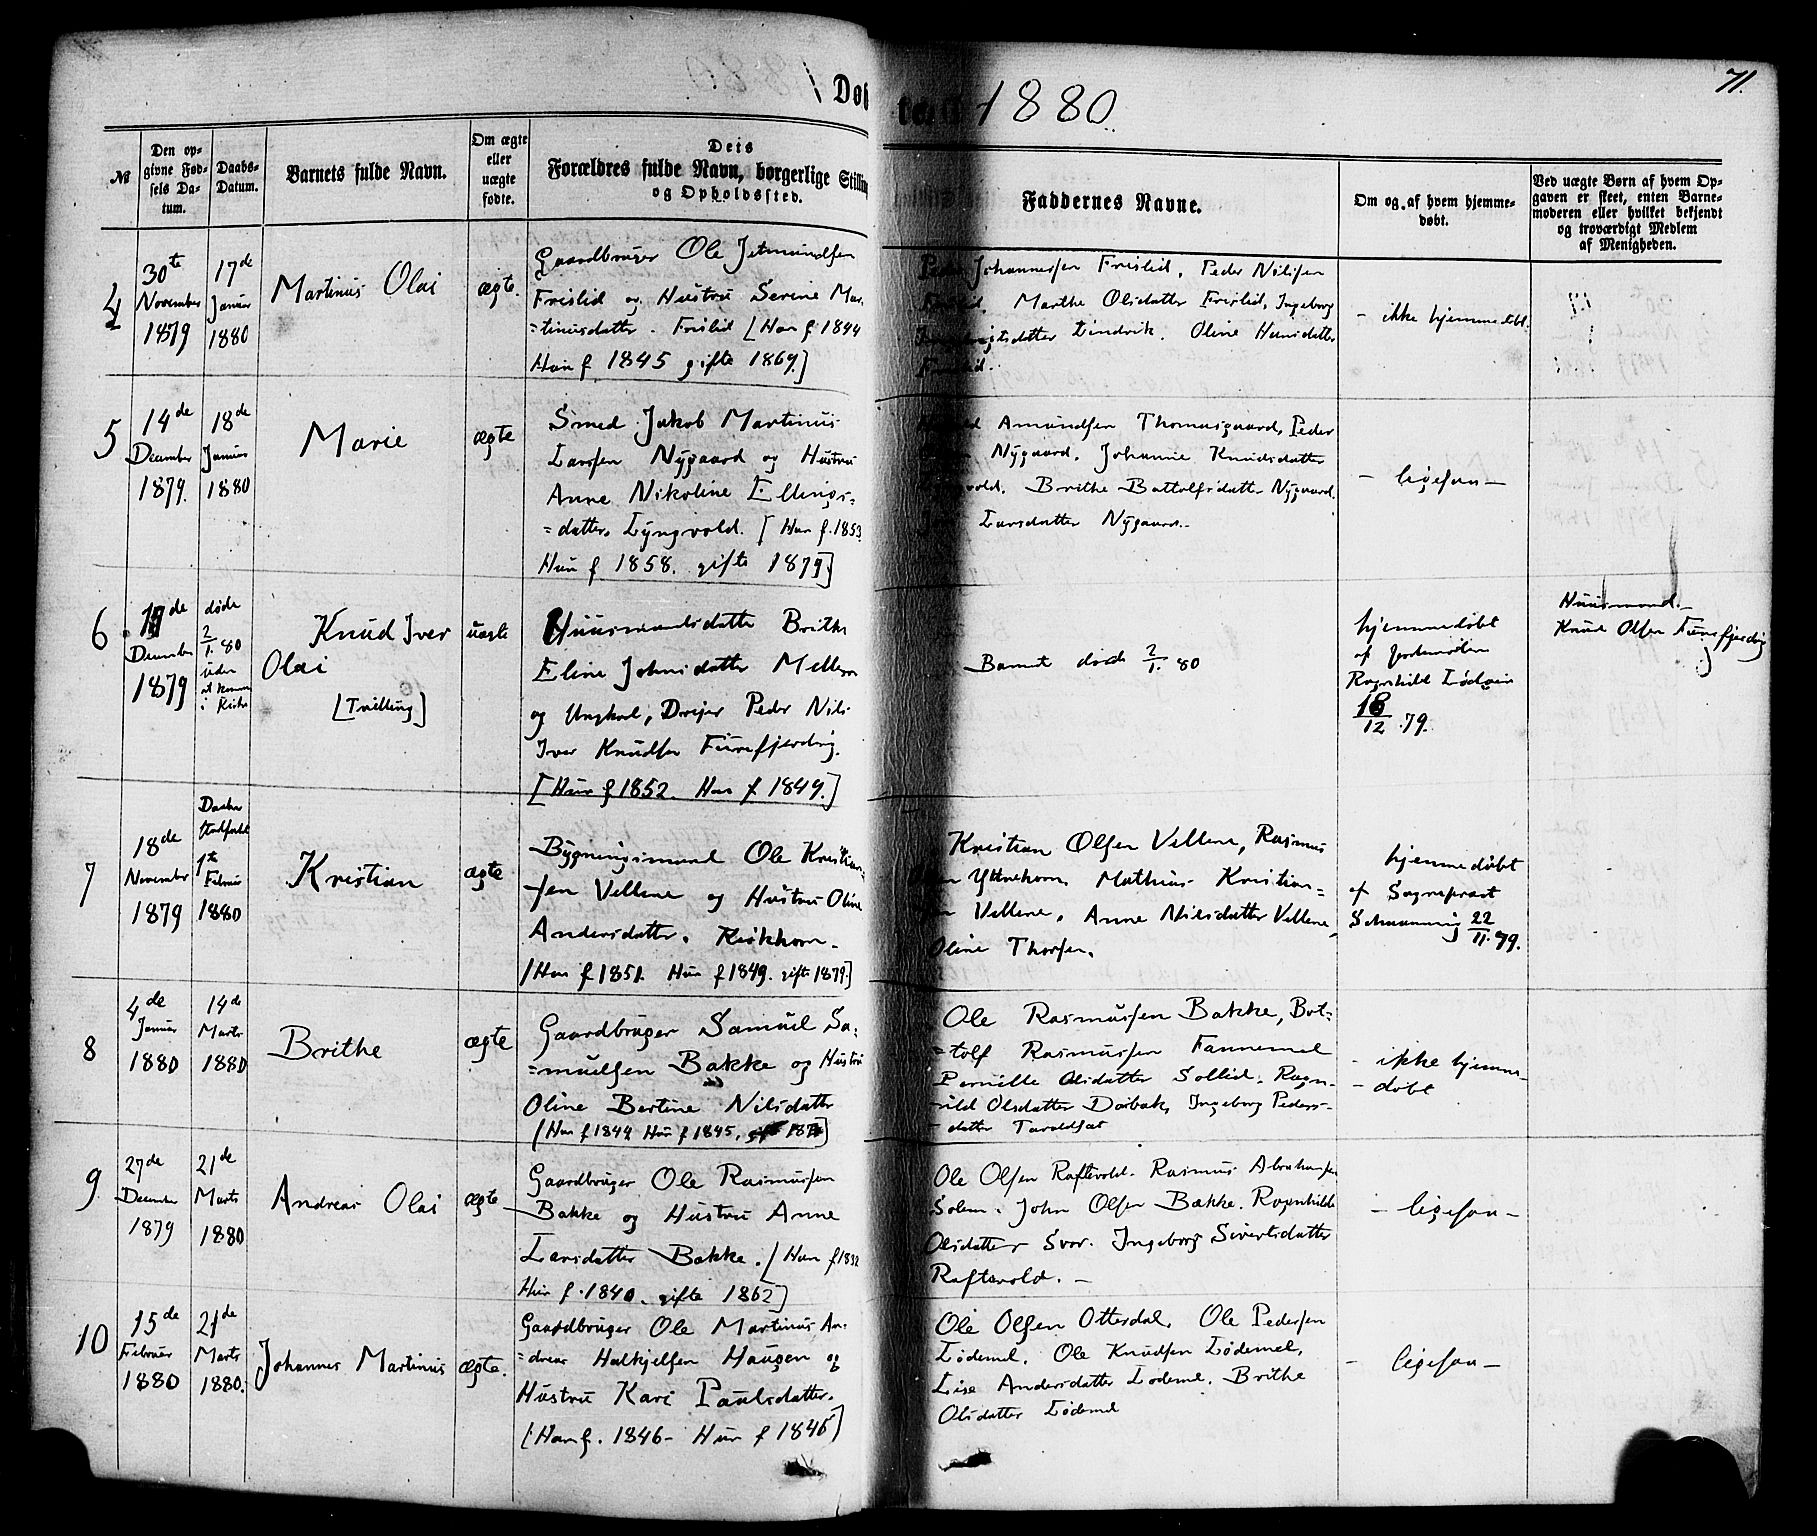 71.
Døb
te 1880
№
Den op-
givne Fød-
sels Da-
tum.
Daabs-
Datum.
Barnets fulde Navn.
Om ægte
eller
uægte
fødte.
Dets
Forældres fulde Navn, borgerlige Stilling
og Opholdssted.
Faddernes Navne.
Om og af hvem hjemme-
døbt.
Ved uægte Børn af hvem Op-
gaven er skeet, enten Barne-
moderen eller hvilket bekjendt
og troværdigt Medlem
af Menigheden.
4
30te
November
1879
17de
Januar
1880
Martinus Olai
ægte.
Gaardbruger Ole Jetmundsen
Frislid og Hustru Serine Mar-
=tinusdatter. Frislid [Han f 1844
Hun f 1845 gifte 1869.]
Peder Johannessen Frislid, Peder Nilssen
Frislid, Marthe Olsdatter Frislid, Ingeborg
Lindvik. Oline Hansdatter
Frislid.
- ikke hjemmedøbt.
5
14de
December
1879.
18de
Januar
1880
Marie
ægte
Smed Jakob Martinus
Larssen Nygaard og Hustru
Anne Nikoline Ellings=
=datter. Lyngvold. [Han f. 1853
Hun f 1858. gifte 1879]
Amundsen Thomasgaard, Peder
Nygaard. Johanne Knudsdatter
Brithe Bottolfsdatter Nygaard.
Larsdatter Nygaard.
- ligesaa -
6
de
December
1879
døde
2/1. 80
uden
at komme
i Kirke
Knud Iver
Olai
[Tvilling]
uægte
Huusmandsdatter Brithe
Eline Johnsdatter
og Ungkarl, Drejer Peder Nils
Iver Knudsen Furefjerding.
[Hun f 1852. Han f 1849.]
Barnet døde 2/1. 80
hjemmedøbt
af Jordmoder
Ragnhild Lødøen
18/12 . 79.
Huusmand
Knud Olsen Furefjerding
7
18de
November
1879
Daaben
stadfæstet
1te
Februar
1880
Kristian
ægte
Bygningsmand Ole Kristian-
sen Vellene og Hustru Oline
Andersdatter. Kirkhorn.
[Han f 1851. Hun f 1849. gifte 1879.]
Kristian Olsen Vellene, Rasmus
Yttrehorn. Mathias Kristian=
Vellene. Anne Nilsdatter Vellene,
Oline Thorsen.
hjemmedøbt
af Sognepræst
Schanning 22/11. 79.
8
4de
Januar
1880
14de
Marts
1880
Brithe
ægte
Gaardbruger Samuel Sa-
=muelsen Bakke og Hustru
Oline Bertine Nilsdatter
[Han f 1844 Hun f 1845. gift 187]
Ole Rasmussen Bakke, Bot=
=tolf Rasmussen Fannemel
Pernille Olsdatter Sollid. Ragn-
=ild Olsdatter Dorbak, Ingeborg Peders-
- datter Taraldset
- ikke hjemme-
- døbt
9
27de
December
1879
21de
Marts
1880
Andreas Olai
ægte
Gaardbruger Ole Rasmussen
Bakke og Hustru Anne
Larsdatter Bakke. [Han f 1832
Hun f. 1840. gifte 1862]
Ole Olsen Raftevold. Rasmus Abrahamsen
Solem. John Olsen Bakke. Ragnhilde
Olsdatter Svor. Ingeborg Sivertsdatter
Raftevold. -
- ligesaa -
10
15de
Februar
1880
21de
Marts
1880.
Johannes Martinus
ægte.
Gaardbruger Ole Martinus An-
=dreas Halkjelsen Haugen og
Hustru Kari Paulsdatter.
[Han f. 1846 - Hun f 1845]
Ole Olsen Otterdal. Ole Pedersen
Lødemel. Ole Knudsen Lødemel.
Lise Andersdatter Lødemel. Brithe
Olsdatter Lødemel
- ligesaa -